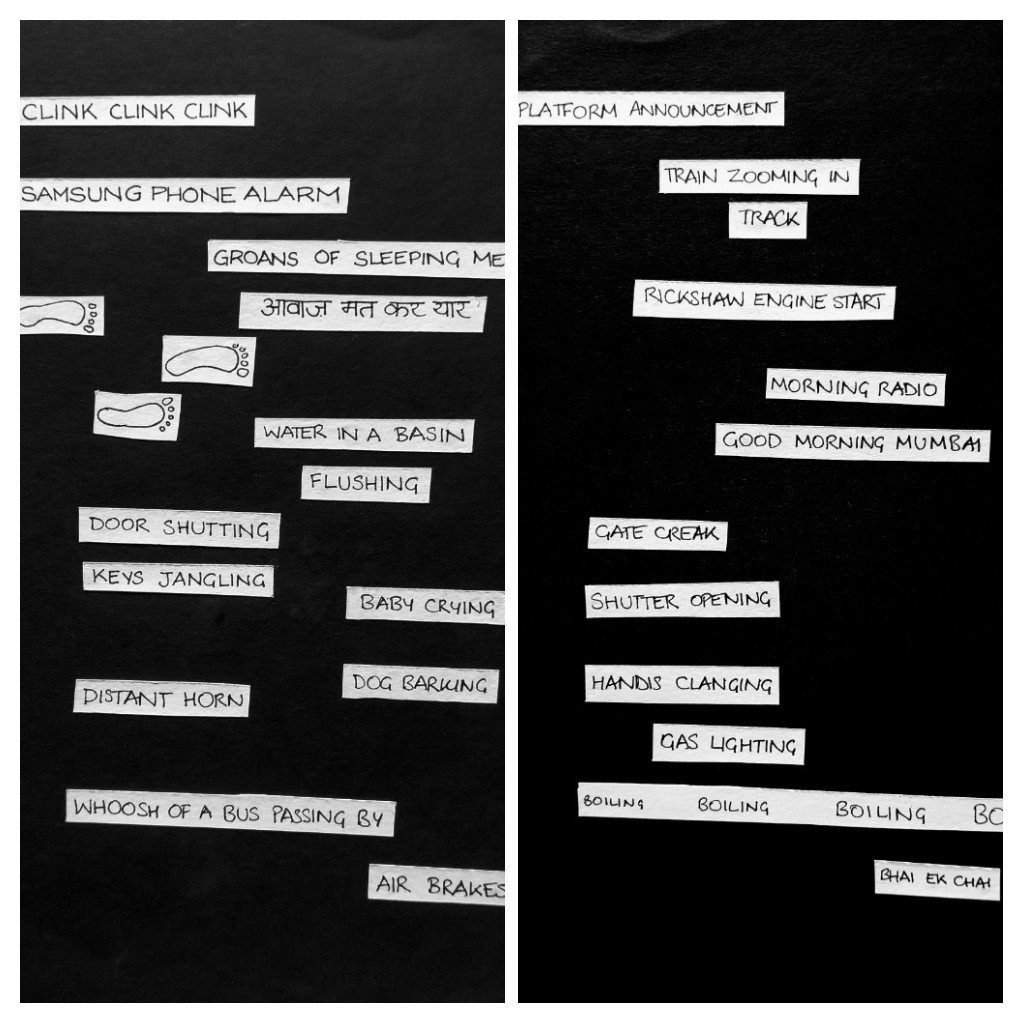 CLINK CLINK CLINK
SAMSUNG PHONE ALARM
GROANS OF SLEEPING ME
आवाज मत कर यार
WATER IN A BASIN
FLUSHING
DOOR SHUTTING
KEYS JANGLING
BABY CRYING
DOG BARKING
DISTANT HORN
WHOOSH OF A BUS PASSING BY
AIR BRAKES
PLATFORM ANNOUNCEMENT
TRAIN ZOOMING IN
TRACK
RICKSHAW ENGINE START
MORNING RADIO
GOOD MORNING MUMBAI
GATE CREAK
SHUTTER OPENING
HANDIS CLANGING
GAS LIGHTING
BOILING BOILING BOILING BO
BHAI EK CHAI